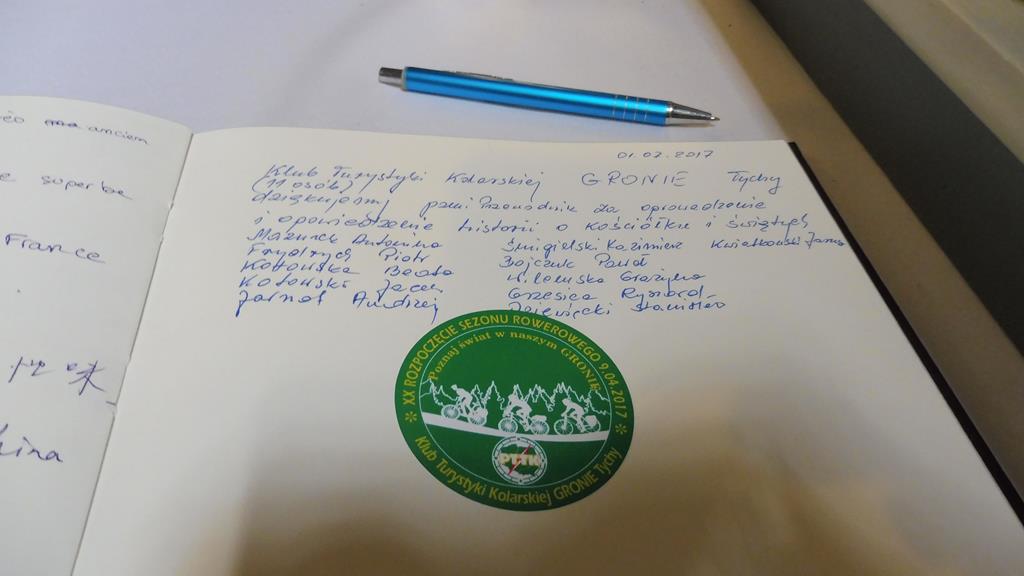 ma anciem
e superbe
France
hina
01.07.2017
Klub Turystyki Kolarskiej GRONIE Tychy
(11 osób)
dziękujemy pani Przewodnik za oprowadzenie
i opowiedzenie historii o kościółku i świętych
Mazurek Antonina Śmigielski Kazimierz Kwiatkowski Janusz
Frydrych Piotr Bojczuk Paweł
Kotowska Beata Grażyna
Kotowski Jacek Grzesica Ryszard
Jarnot Andrzej Dziewięcki Stanisław
XX ROZPOCZĘCIE SEZONU ROWEROWEGO 9.04.2017
Poznaj świat w naszym GRONIE
PTTK
Klub Turystyki Kolarskiej GRONIE Tychy